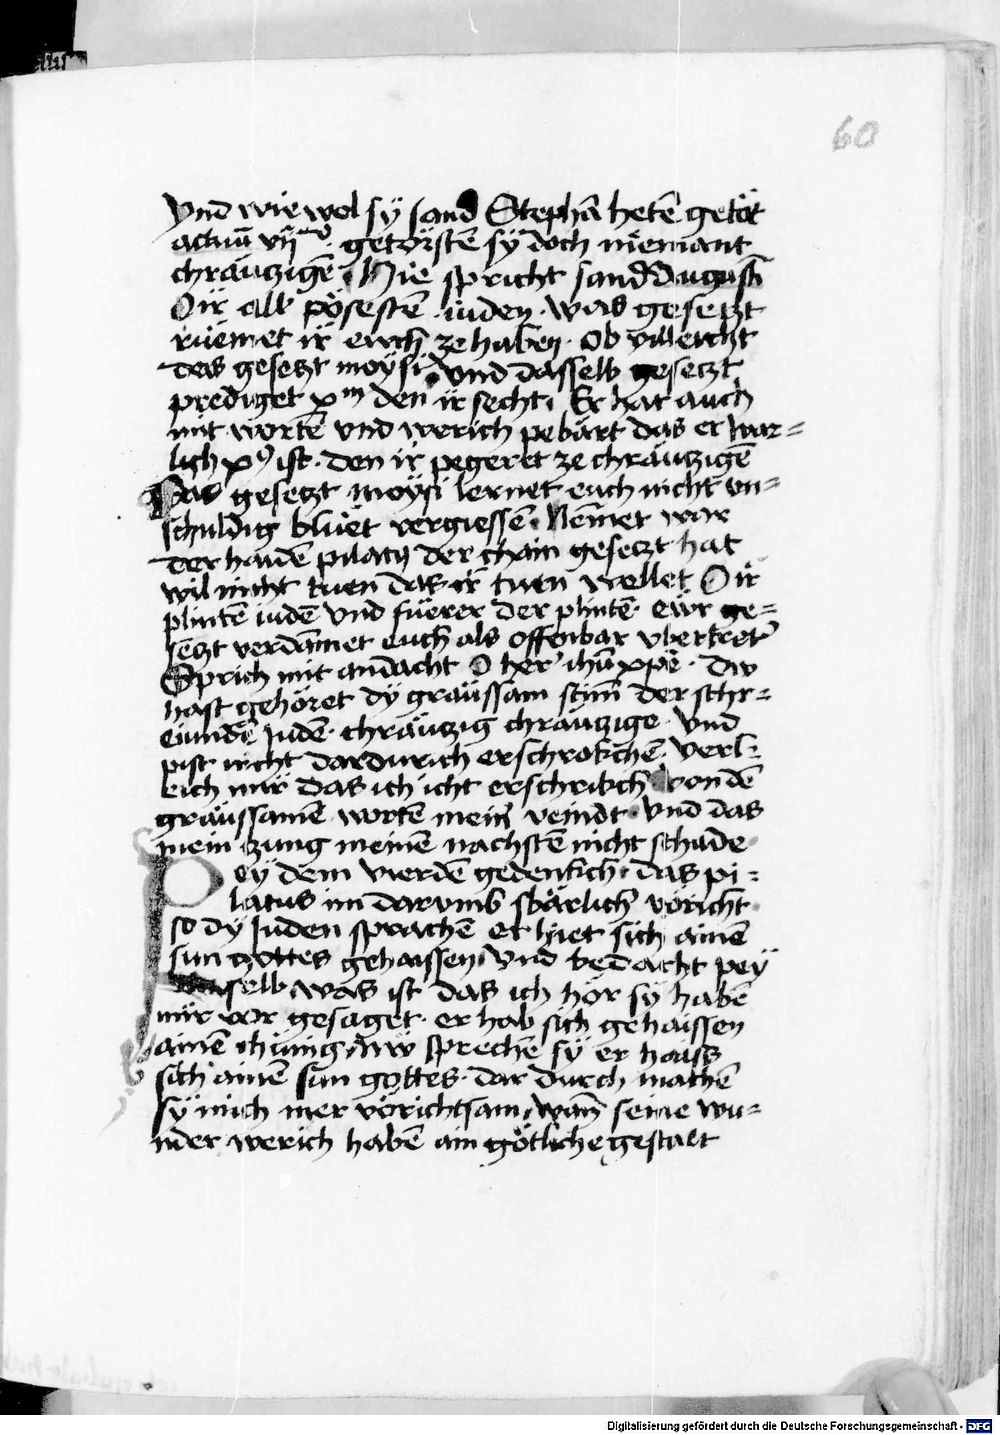 60
vnd wie wol sÿ sand Stephā hetē getöt
actuū vij° getörstē sÿ doch niemant
chräuczigē. Hie spricht sand Augustī
O ir all pösestē iuden. was gesetzt
rüemet ir euch ze haben. ob villeicht
das gesetzt moÿsi. vnd dasselb gesetzt
prediget xpm den ir secht. Er hat auch
mit wortē vnd werich pebärt das er war=
lich xpus ist. den ir pegeret ze chräutzigē
Das gesetzt moÿsi lernet euch nicht vn=
schuldig blüet vergiessen. Nemet war
der haidē pilatꝰ der chain gesetzt hat
wil nicht tuen das ir tuen wellet O ir
plintē iudē vnd füerer der plintē. ewr ge=
setzt verdāmet euch als offenbar vbertreter
Sprich mit andacht O her ihū xpē. dw
hast gehöret dÿ graüssam stim̄ der schr=
eiundē Judē. chräutzig chräutzige. vnd
pist nicht dardurich erschrokchē. verl=
eich mir das ich icht erschrikch von dē
gräussamē wortē meiner veindt. vnd das
mein zung meinē nachstē nicht schade.
Peÿ dem vierdē gedenkch. das pi=
latus im darumb sbärlicher vöricht.
so dÿ Juden sprachē er hiet sich ainē
sun gottes gehaissen. vnd bedacht peÿ
im selb, was ist das ich hör sÿ habē
mir vor gesaget. er hab sich gehaissen
ainē chünig, nw sprechē sÿ er haiss
sich ainē sun gottes. dar durch machē
sÿ mich mer vörichtsam, wan̄ seine wu=
nder werich habē ain götliche gestalt
Digitalisierung gefördert durch die Deutsche Forschungsgemeinschaft - DFG